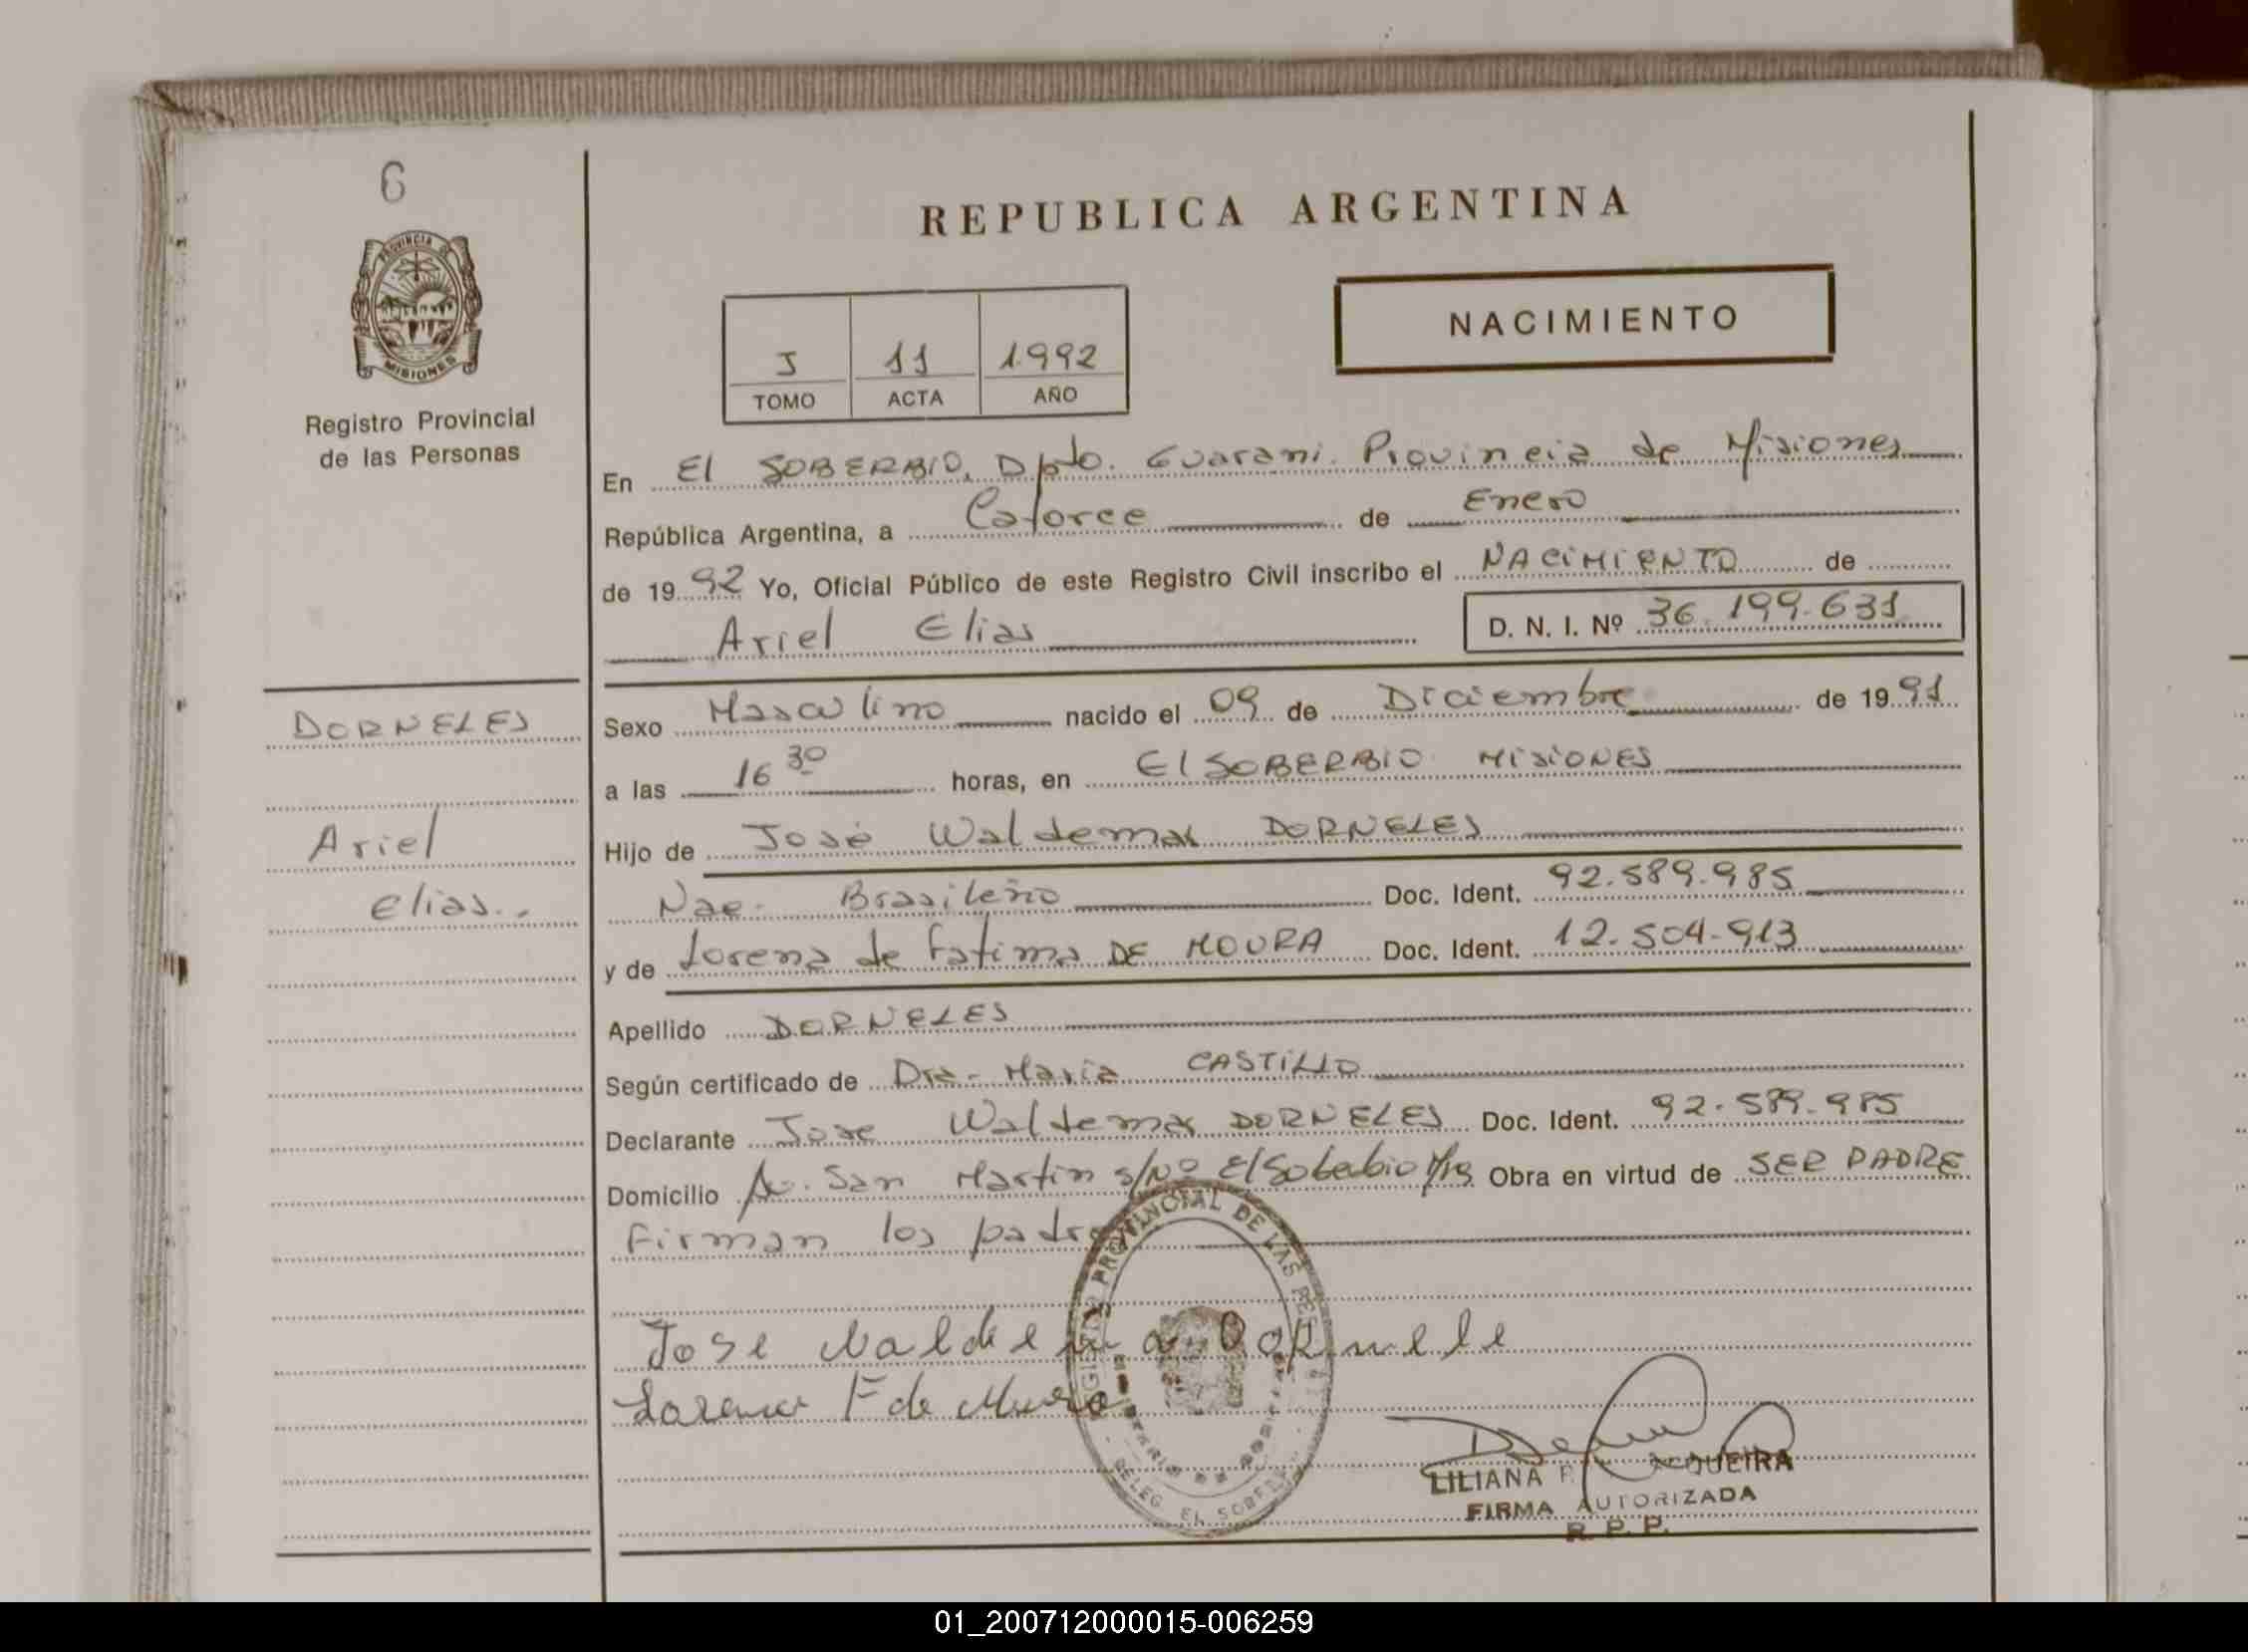 6
PROVINCIA DE
MISIONES
Registro Provincial
de las Personas
DORNELES
Ariel
Elias.-
REPUBLICA ARGENTINA
NACIMIENTO
I 11 1.992
TOMO ACTA AÑO
En El SOBERBIO, Dpto. Guarani. Provincia de Misiones
República Argentina, a Catorce de Enero
de 1992 Yo, Oficial Público de este Registro Civil inscribo el NACIMIENTO de
Ariel Elias D. N. I. Nº 36.199.631
Sexo Masculino nacido el 09 de Diciembre de 1991
a las 16 30 horas, en El SOBERBIO MISIONES
Hijo de José Waldemar DORNELES
Nac. Brasileño Doc. Ident. 92.589.985
y de Lorena de Fatima DE MOURA Doc. Ident. 12.504.913
Apellido DORNELES
Según certificado de Dra. Maria CASTILLO
Declarante Jose Waldemar DORNELES Doc. Ident. 92.589.985
Domicilio Av. San Martin s/Nº El Soberbio Mis Obra en virtud de SER PADRE
Firman los padres
REGISTRO PROVINCIAL DE LAS PE
DELEG. EL SOBERBIO
Jose
F de
LILIANA
FIRMA AUTORIZADA
R. P. P.
01_200712000015-006259